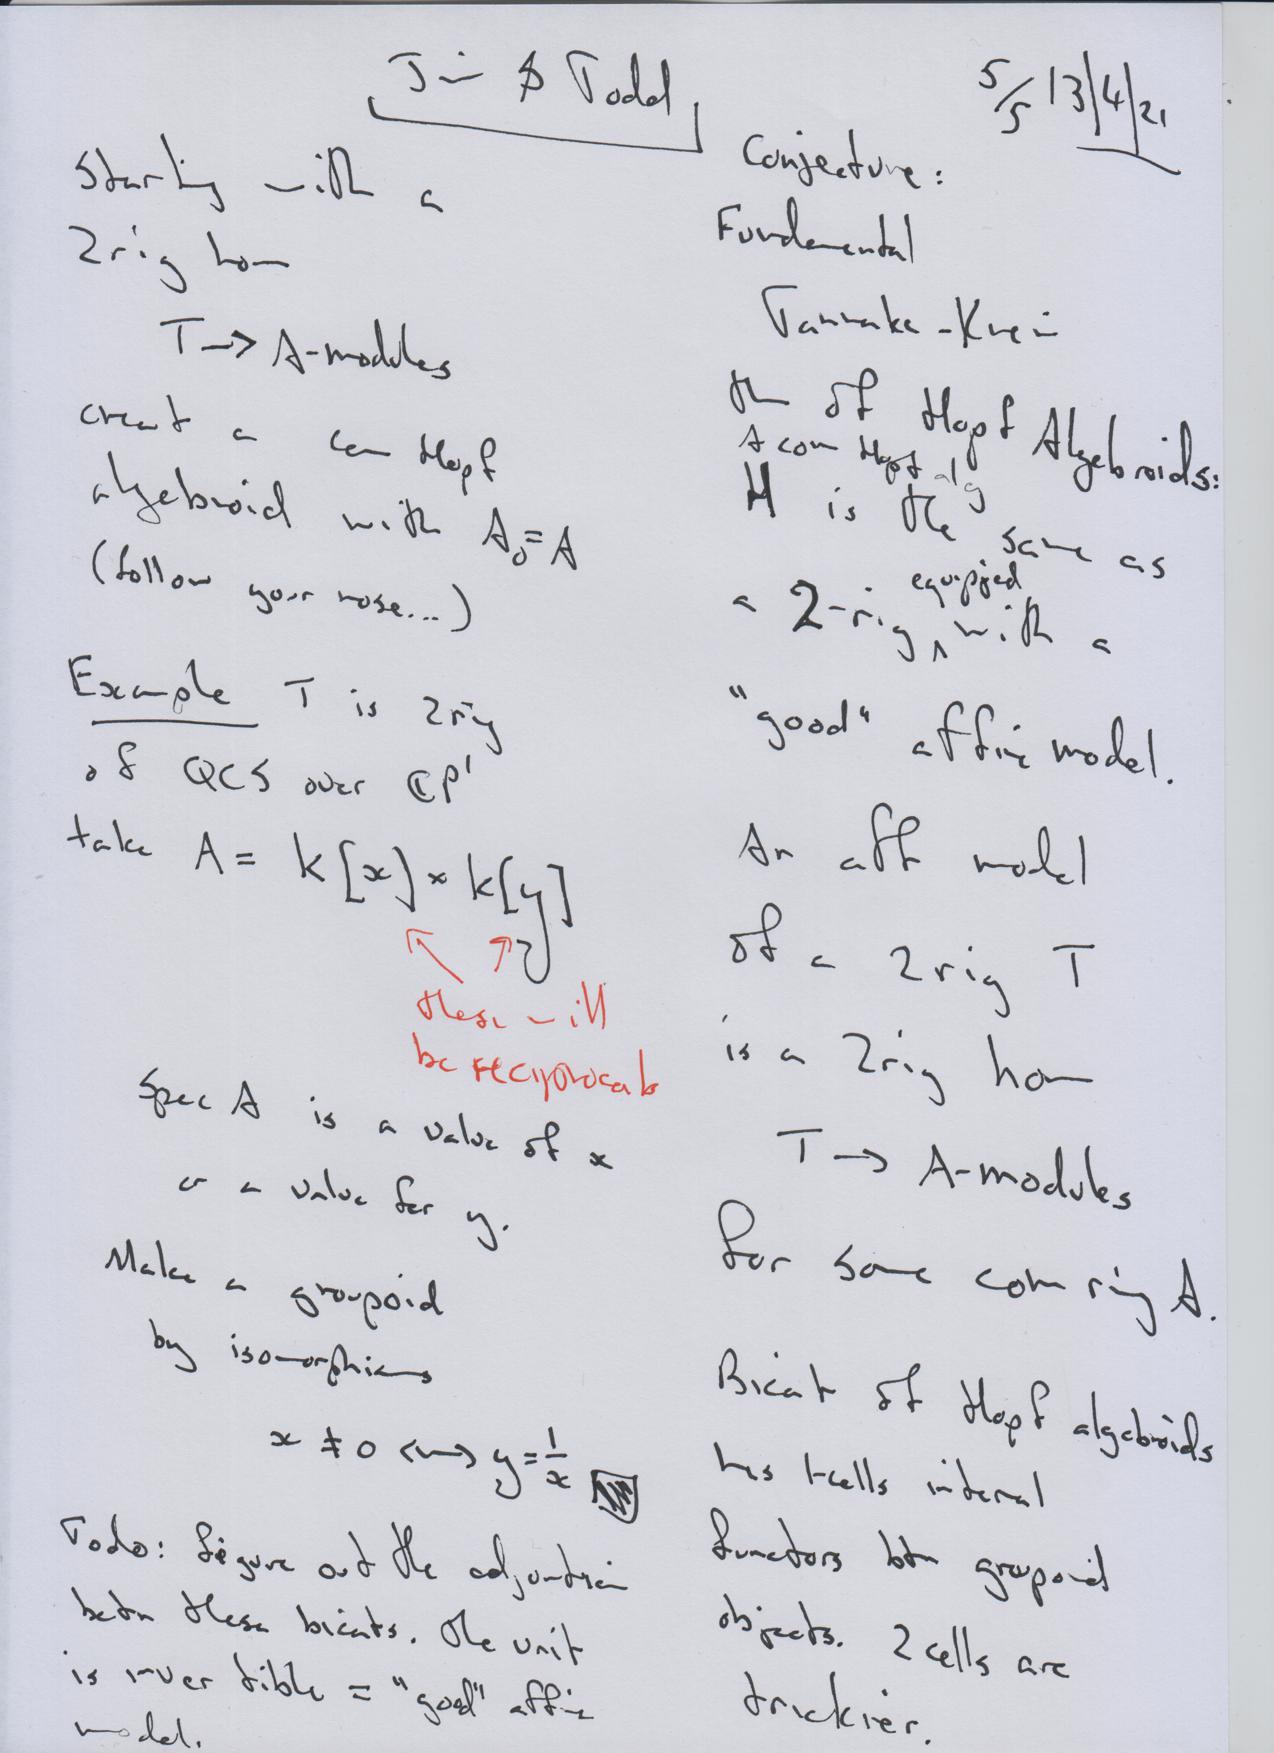 Jim & Todd
5/5 13/4/21
Starting with a
2rig hom
T → A-modules
create a com Hopf
algebroid with A₀ = A
(follow your nose...)
Example T is 2rig
of QCS over ℂP¹
take A = k[x] × k[y]
these will
be reciprocals
Spec A is a value of x
or a value for y.
Make a groupoid
by isomorphisms
x ≠ 0 ↔ y = 1/x
Todo: figure out the adjunction
betn these bicats. The unit
is invertible = "good" affine
model.
Conjecture:
Fundamental
Tannaka-Krein
thm of Hopf Algebroids:
A com Hopf alg
H is the same as
a 2-rig, equipped with a
"good" affine model.
An aff model
of a 2rig T
is a 2rig hom
T → A-modules
for some com ring A.
Bicat of Hopf algebroids
has 1-cells internal
functors btn groupoid
objects. 2 cells are
trickier.